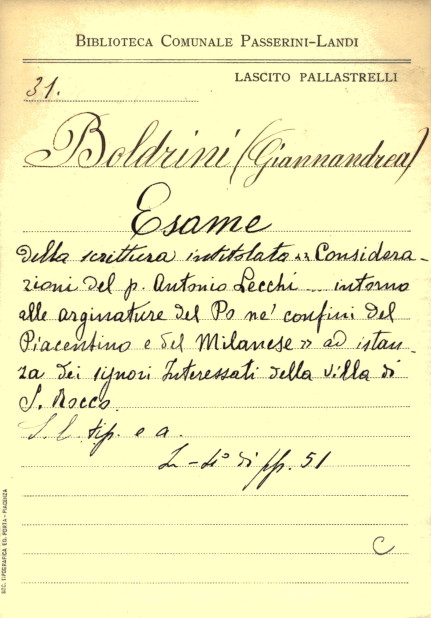 BIBLIOTECA COMUNALE PASSERINI-LANDI
LASCITO PALLASTRELLI
31.
Boldrini (Giannandrea)
Esame
della scrittura intitolata « Considera-
zioni del p. Antonio Lecchi ... intorno
alle arginature del Po ne' confini del
Piacentino e del Milanese » ad istan-
za dei signori Interessati della villa di
S. Rocco.
S. l. tip. e a.
In-4° di pp. 51
C
SOC. TIPOGRAFICA ED. PORTA - PIACENZA